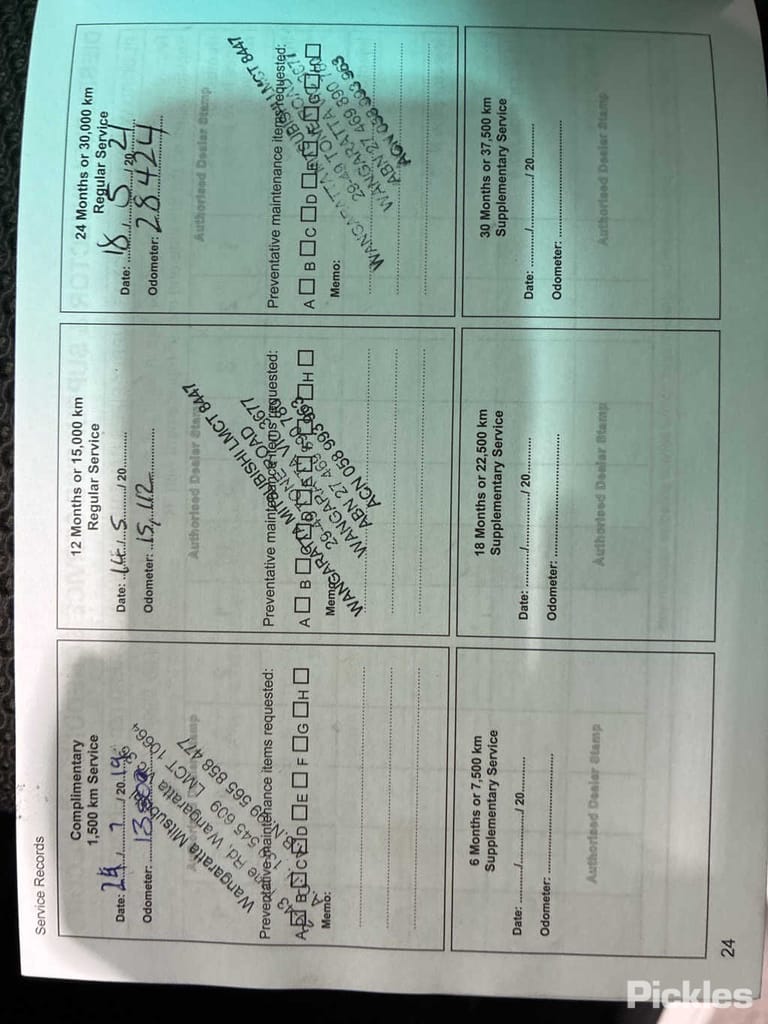 Service Records
Complimentary
1,500 km Service
Date: 24 / 7 / 20 19
Odometer:
Authorised Dealer Stamp
Wangaratta Mitsubishi
Rd, Wangaratta
545 609 LMCT 10664
565 858 477
Preventative maintenance items requested:
A B C D E F G H
Memo:
12 Months or 15,000 km
Regular Service
Date: 14 / 5 / 20
Odometer: 15,112
Authorised Dealer Stamp
WANGARATTA MITSUBISHI LMCT 8447
29-49 TONE ROAD
WANGARATTA VIC 3677
ABN 27 469 890 787
AGN 058 993 963
Preventative maintenance items requested:
A B C D E F G H
Memo:
24 Months or 30,000 km
Regular Service
Date: 18 / 5 / 20 21
Odometer: 28424
Authorised Dealer Stamp
WANGARATTA MITSUBISHI LMCT 8447
29-49 TONE ROAD
WANGARATTA VIC 3677
ABN 27 469 890 787
AGN 058 993 963
Preventative maintenance items requested:
A B C D E F G H
Memo:
6 Months or 7,500 km
Supplementary Service
Date: / / 20
Odometer:
Authorised Dealer Stamp
18 Months or 22,500 km
Supplementary Service
Date: / / 20
Odometer:
Authorised Dealer Stamp
30 Months or 37,500 km
Supplementary Service
Date: / / 20
Odometer:
Authorised Dealer Stamp
24
Pickles